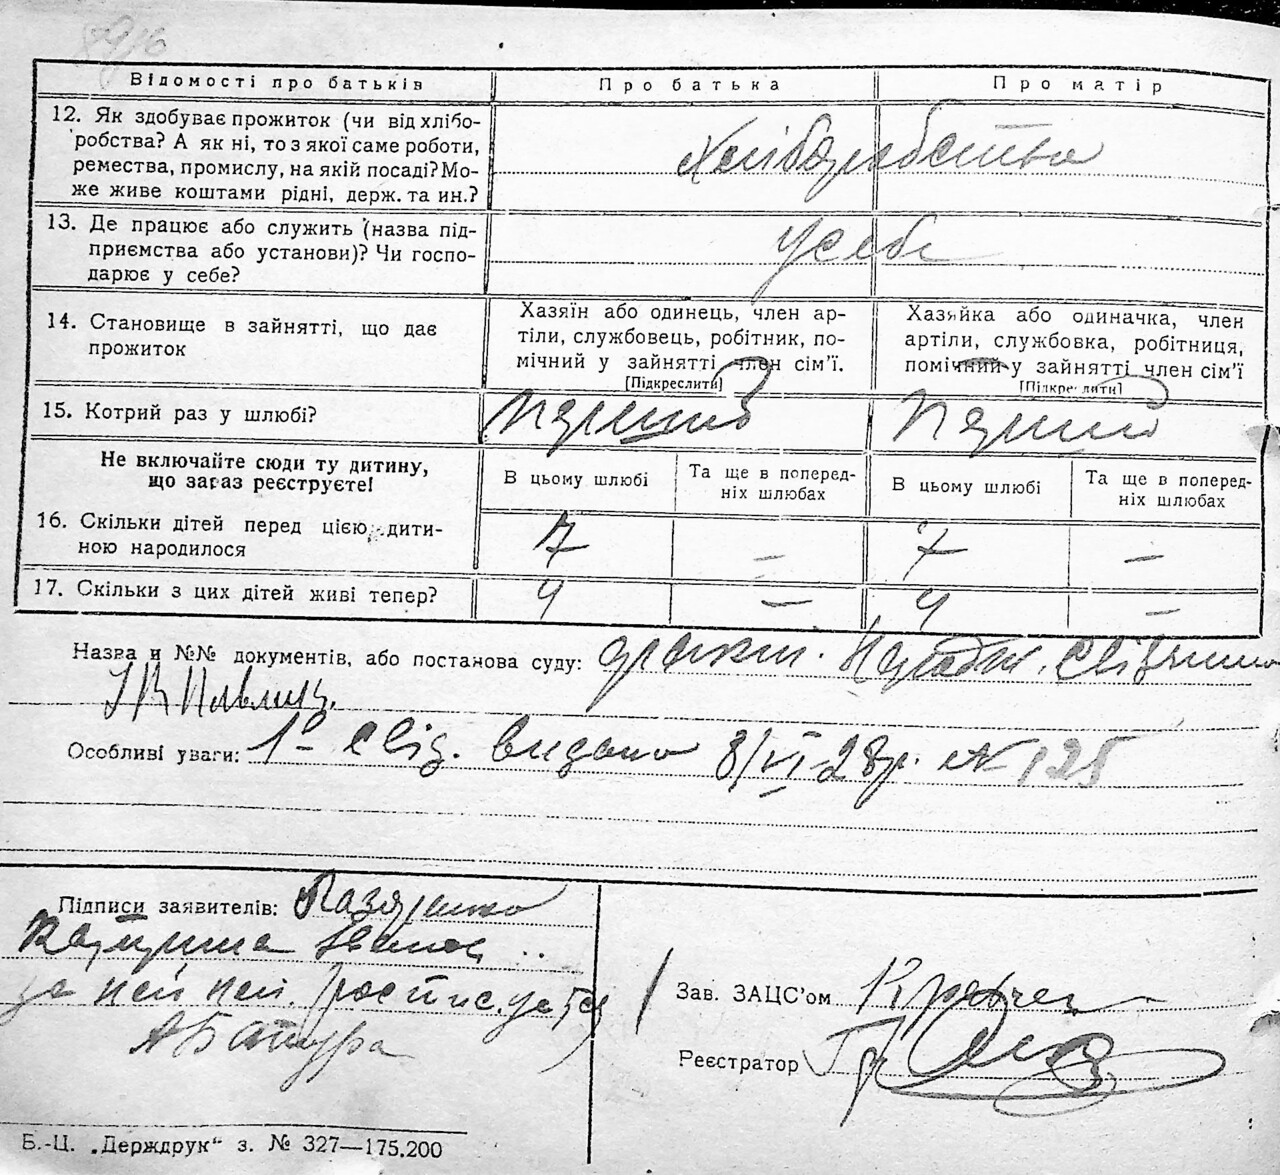 Відомості про батьків
Про батька
Про матір
12. Як здобуває прожиток (чи від хлібо-
робства? А як ні, то з якої саме роботи,
ремества, промислу, на якій посаді? Мо-
же живе коштами рідні, держ. та ин.?
Хліборобство
13. Де працює або служить (назва під-
приємства або установи)? Чи госпо-
дарює у себе?
У себе
14. Становище в зайнятті, що дає
прожиток
Хазяїн або одинець, член ар-
тіли, службовець, робітник, по-
мічний у зайнятті член сім'ї.
[Підкреслити]
Хазяйка або одиначка, член
артіли, службовка, робітниця,
помічний у зайнятті член сім'ї
[Підкреслити]
15. Котрий раз у шлюбі?
Перший
Перший
Не включайте сюди ту дитину,
що зараз реєструєте!
В цьому шлюбі
Та ще в поперед-
ніх шлюбах
В цьому шлюбі
Та ще в поперед-
ніх шлюбах
16. Скільки дітей перед цією дити-
ною народилося
7
–
7
–
17. Скільки з цих дітей живі тепер?
4
–
4
–
Назва и №№ документів, або постанова суду:
Особливі уваги: 1º – Свід. видано 8/VI–28р. № 125
Підписи заявителів:
Катерина Іванов..
за неї неп. розписується
А Батура
Зав. ЗАЦС'ом
Реєстратор
Б.-Ц. „Держдрук“ з. № 327—175.200